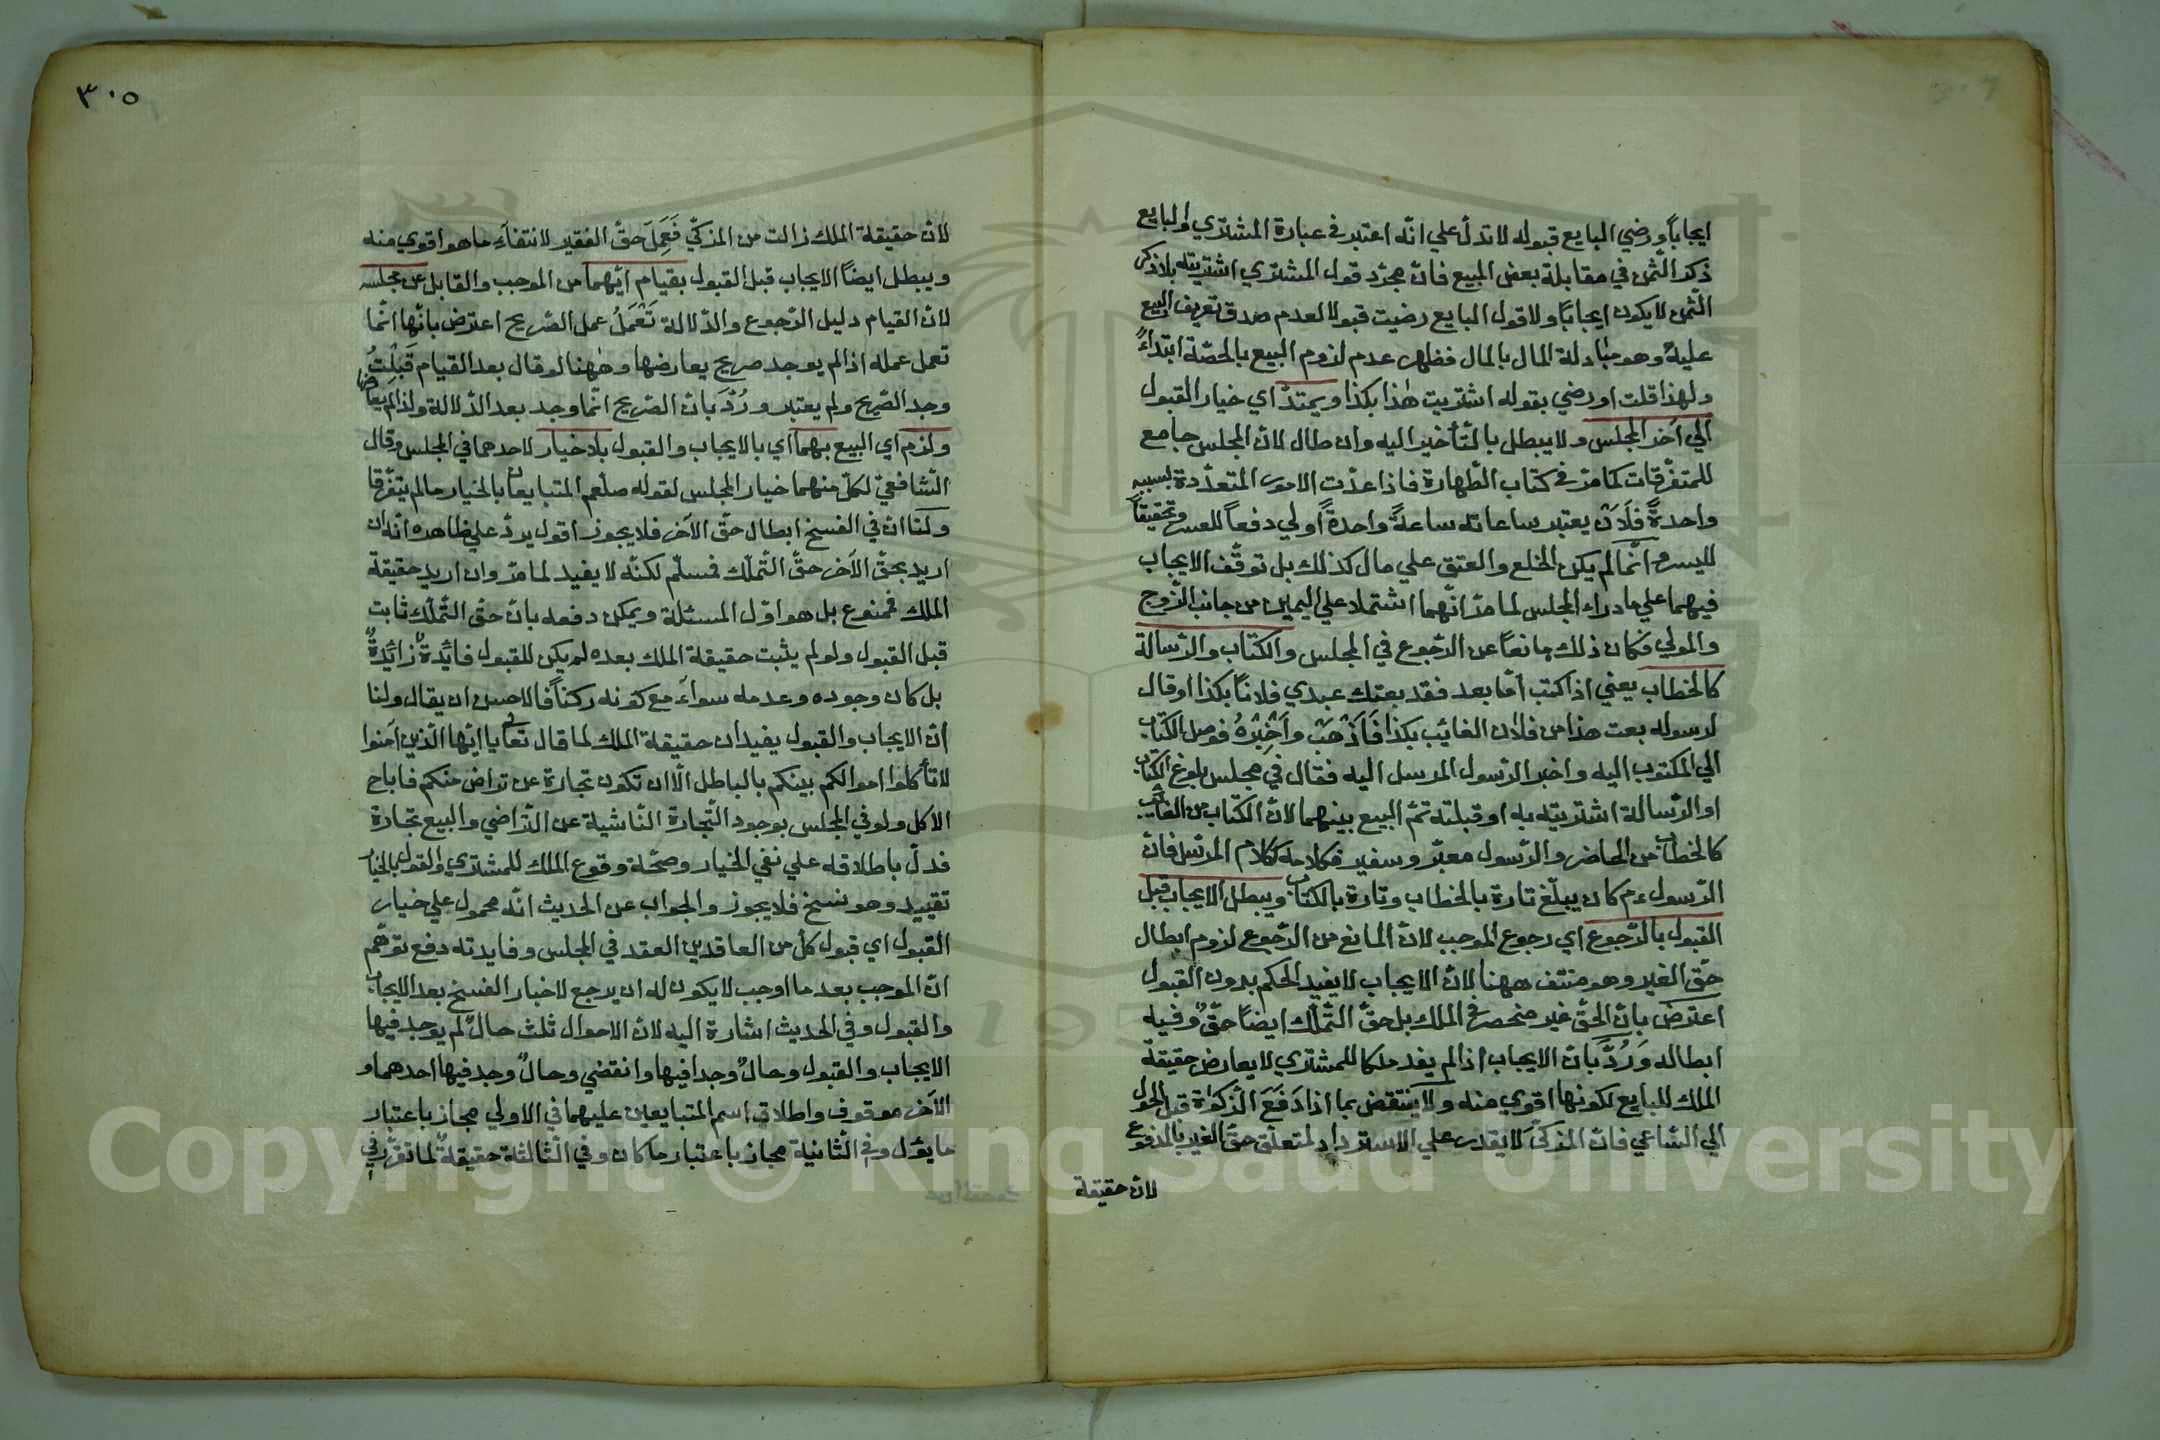 ايجاباً ورضي البايع قبوله لا تدلّ علي انّه اعتبر في عبارة المشتري والبايع
ذكر الثّمن في مقابلة بعض المبيع فانّ مجرّد قول المشتري اشتريته بلا ذكر
الثّمن لا يكون ايجابًا ولا قول البايع رضيت قبولا لعدم صدق تعريف البيع
عليه وهو مبادلة المال بالمال فظهر عدم لزوم البيع بالحصّة ابتداءً
ولهذا قلت او رضي بقوله اشتريت هٰذا بكذا ويمتدّ اي خيار القبول
الي آخر المجلس ولا يبطل بالتّأخير اليه وان طال لانّ المجلس جامع
للمتفرّقات كما مرّ في كتاب الطّهارة فاذا عدّت الامور المتعدّدة بسببه
واحدةً فلَاَنْ يعتبر ساعاته ساعةً واحدةً اولي دفعاً للعسر وتحقيقاً
لليسر وانّما لم يكن الخلع والعتق علي مال كذلك بل توقّف الايجاب
فيهما علي ما وراء المجلس لما مرّ انّهما اشتملا علي اليمين من جانب الزّوج
والمولي فكان ذلك مانعًا عن الرّجوع في المجلس والكتاب والرّسالة
كالخطاب يعني اذا كتب امّا بعد فقد بعتك عبدي فلانًا بكذا او قال
لرسوله بعت هذا من فلان الغائب بكذا فَاذْهَبْ واَخْبِرْهُ فوصل الكتاب
الي المكتوب اليه واخبر الرّسول المرسل اليه فقال في مجلس بلوغ الكتاب
او الرّسالة اشتريته به او قبلته تمّ البيع بينهما لانّ الكتاب من الغائب
كالخطاب من الحاضر والرّسول معبّر وسفير فكلامه ككلام المرسل فانّ
الرّسول ءم كان يبلّغ تارة بالخطاب وتارة بالكتاب ويبطل الايجاب قبل
القبول بالرّجوع اي رجوع الموجب لانّ المانع من الرّجوع لزوم ابطال
حقّ الغير وهو منتف ههنا لانّ الايجاب لا يفيد الحكم بدون القبول
اعترض بانّ الحقّ غير منحصر في الملك بل حقّ التّملّك ايضاً حقٌّ وفيه
ابطاله وَرُدَّ بانّ الايجاب اذا لم يفد ملكا للمشتري لا يعارض حقيقة
الملك للبايع لكونها اقوي منه ولا ينتقض بما اذا دَفَعَ الزّكوٰة قبل الحول
الي السّاعي فانّ المزكّي لا يقدر علي الاسترداد لتعلّق حقّ الغير بالمدفوع
لانّ حقيقة
٣٠٥
لانّ حقيقة الملك زالت من المزكّي فَعَمِلَ حقُّ الفقير لانتفاءِ ما هو اقوي منه
ويبطل ايضاً الايجاب قبل القبول بقيام ايّهما من الموجب والقابل عن مجلسه
لانّ القيام دليل الرّجوع والدّلالة تَعْمَلُ عمل الصّريح اعترض بانّها انّما
تعمل عمله اذا لم يوجد صريح يعارضها وههنا لو قال بعد القيام قَبِلْتُ
وجد الصّريح ولم يعتبر ورُدَّ بانّ الصّريح انّما وجد بعد الدّلالة ولذا لم يعارض
ولزم اي البيع بهما اي بالايجاب والقبول بلا خيار لاحدهما في المجلس وقال
الشّافعيّ لكلّ منهما خيار المجلس لقوله صلّعم المتبايعان بالخيار ما لم يتفرّقا
ولنا انّ في الفسخ ابطال حقّ الآخر فلا يجوز اقول يردّ علي ظاهره انّه ان
اريد بحقّ الآخر حقّ التّملّك فمسلّم لكنّه لا يفيد لما مرّ وان اريد حقيقة
الملك فممنوع بل هو اوّل المسئلة ويمكن دفعه بانّ حقّ التّملّك ثابت
قبل القبول ولو لم يثبت حقيقة الملك بعده لم يكن للقبول فائدةٌ زائدةٌ
بل كان وجوده وعدمه سواءً مع كونه ركناً فالاحسن ان يقال ولنا
انّ الايجاب والقبول يفيدان حقيقة الملك لما قال تعالي يا ايّها الّذين آمنوا
لا تأكلوا اموالكم بينكم بالباطل الّا ان تكون تجارة عن تراض منكم فاباح
الاكل ولو في المجلس بوجود التّجارة النّاشية عن التّراضي والبيع تجارة
فدلّ باطلاقه علي نفي الخيار وصحّة وقوع الملك للمشتري والقول بالخيار
تقييد وهو نسخ فلا يجوز والجواب عن الحديث انّه محمول علي خيار
القبول اي قبول كلّ من العاقدين العقد في المجلس وفايدته دفع توهّم
انّ الموجب بعد ما اوجب لا يكون له ان يرجع لا خيار الفسخ بعد الايجاب
والقبول وفي الحديث اشارة اليه لانّ الاحوال ثلث حالٌ لم يوجد فيها
الايجاب والقبول وحالٌ وجدا فيها وانقضي وحالٌ وجد فيها احدهما و
الآخر موقوف واطلاق اسم المتبايعين عليهما في الاولي مجاز باعتبار
ما يؤل وفي الثّانية مجاز باعتبار ما كان وفي الثّالثة حقيقةٌ لما تقرّر في
Copyright © King Saud University